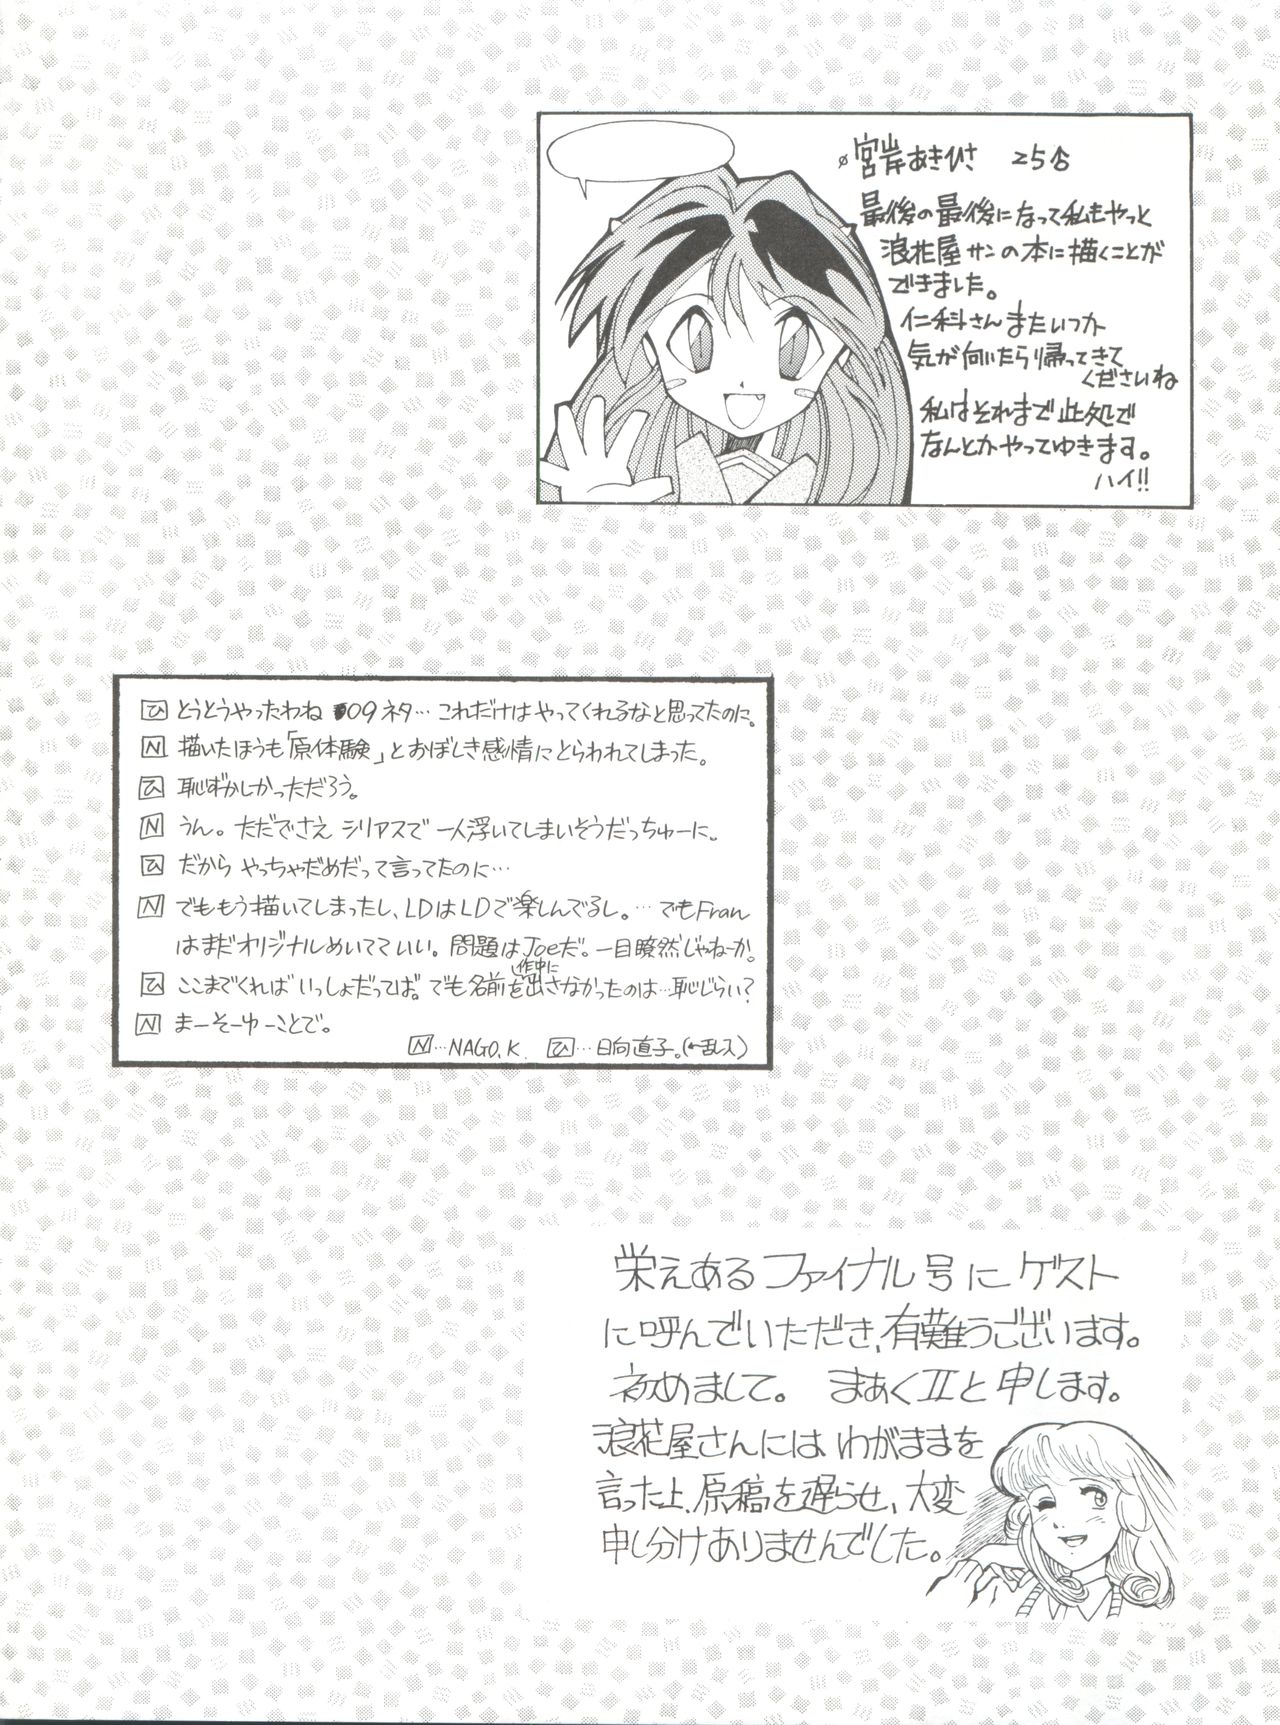 宮岸あきひさ 25合
最後の最後になって私もやっと
浪花屋サンの本に描くことが
できました。
仁科さんまたいつか
気が向いたら帰ってきて
くださいね
私はそれまで此処で
なんとかやってゆきます。
ハイ!!
ひ とうとうやったわね 009ネタ… これだけはやってくれるなと思ってたのに。
N 描いたほうも「原体験」とおぼしき感情にとらわれてしまった。
ひ 恥ずかしかっただろう。
N うん。ただでさえ シリアスで 一人浮いてしまいそうだっちゅーに。
ひ だから やっちゃだめだって言ってたのに…
N でももう描いてしまったし、LDはLDで楽しんでるし。…でもFran
はまだオリジナルめいてていい。問題はJoeだ。一目瞭然じゃねーか。
ひ ここまでくればいっしょだってば。でも名前を作中に出さなかったのは…恥じらい?
N まーそーゆーことで。
N…NAGO.K. ひ…日向直子。(←乱入)
栄えあるファイナル号にゲスト
に呼んでいただき、有難うございます。
初めまして。 まぁくIIと申します。
浪花屋さんにはわがままを
言った上、原稿を遅らせ、大変
申し分けありませんでした。